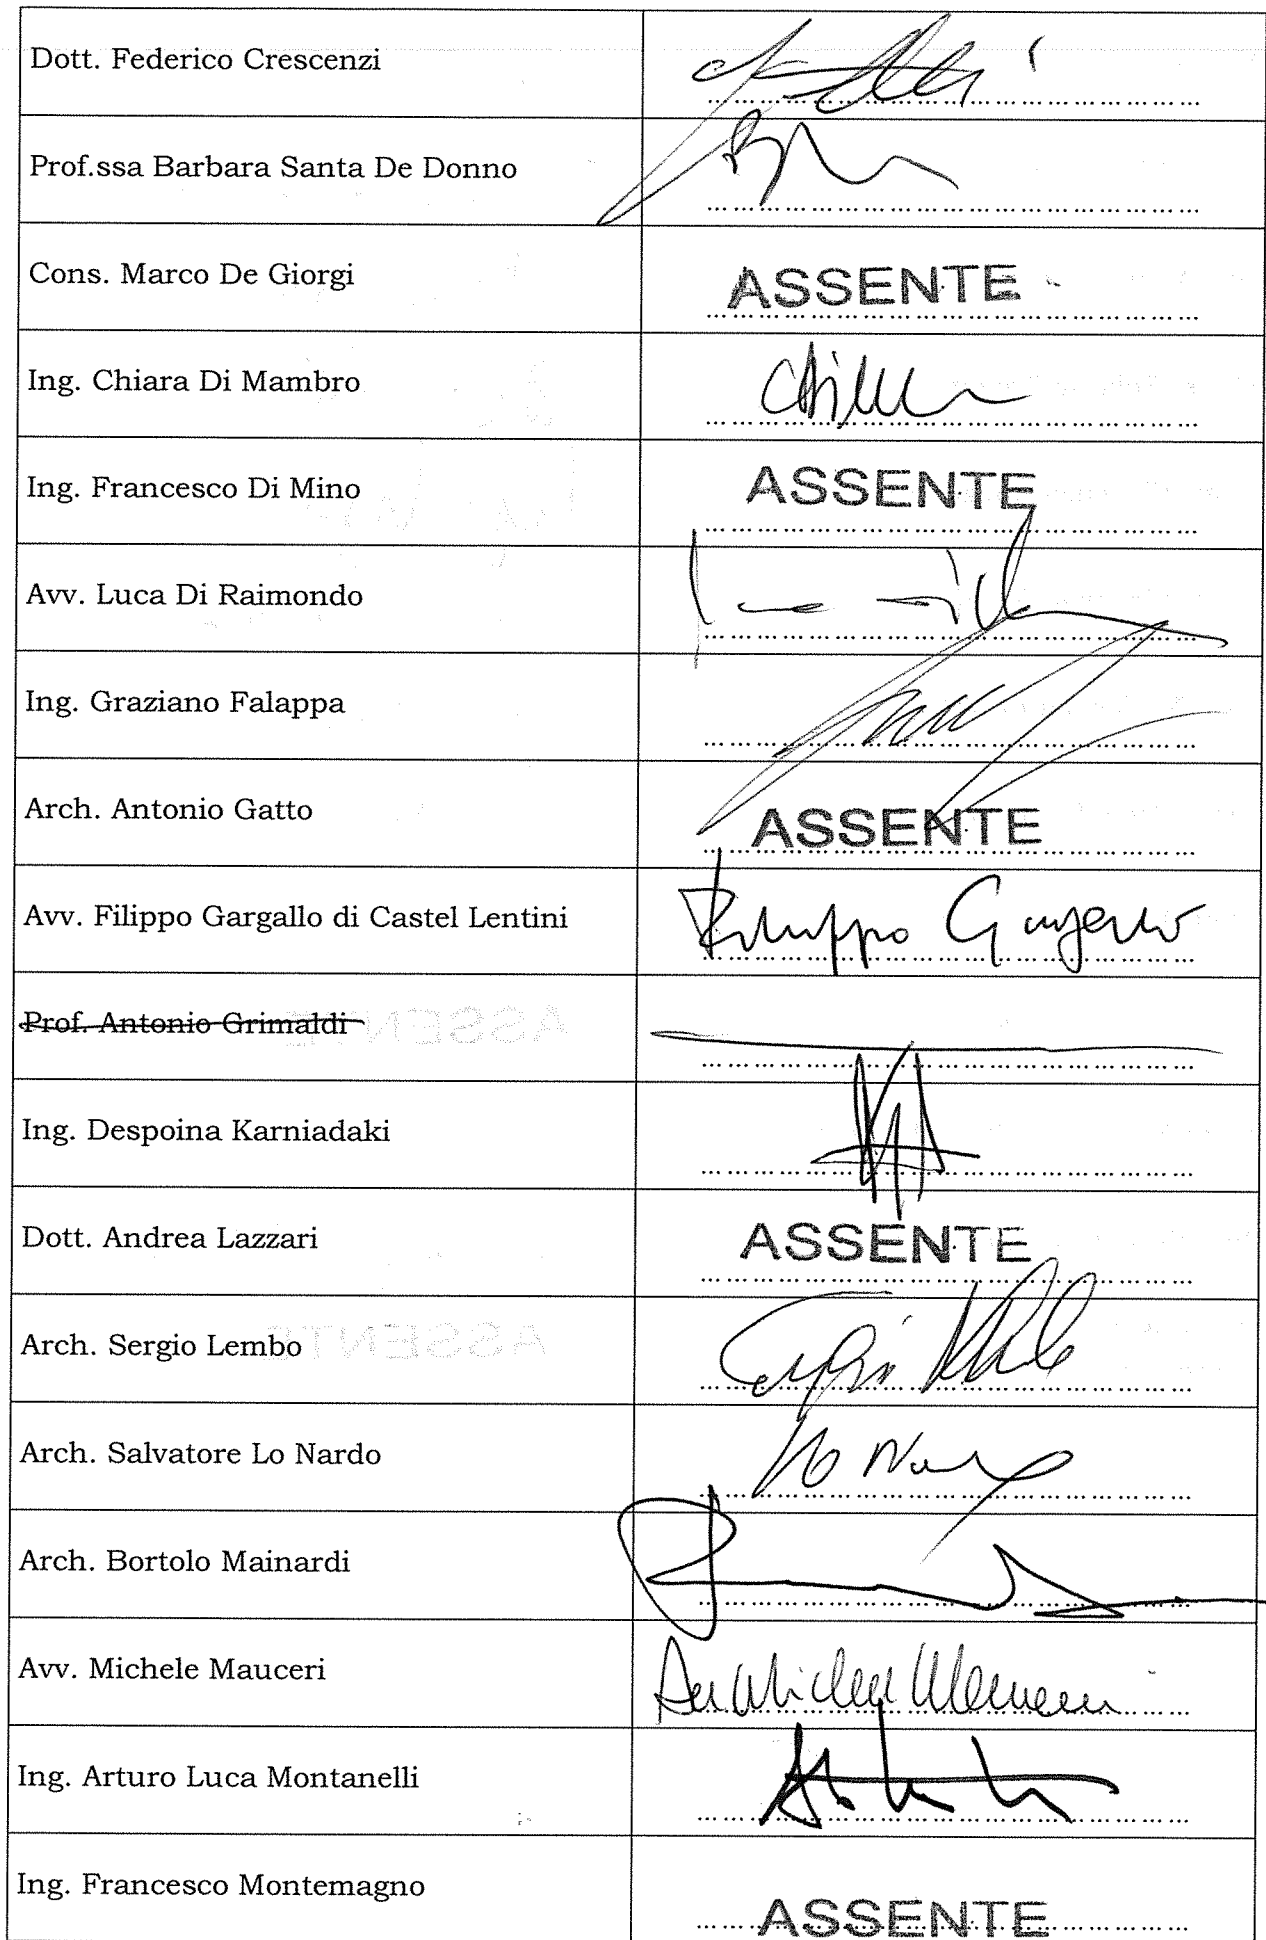 Dott. Federico Crescenzi
Prof.ssa Barbara Santa De Donno
Cons. Marco De Giorgi ASSENTE
Ing. Chiara Di Mambro
Ing. Francesco Di Mino ASSENTE
Avv. Luca Di Raimondo
Ing. Graziano Falappa
Arch. Antonio Gatto ASSENTE
Avv. Filippo Gargallo di Castel Lentini Filippo Gargallo
Prof. Antonio Grimaldi
Ing. Despoina Karniadaki
Dott. Andrea Lazzari ASSENTE
Arch. Sergio Lembo
Arch. Salvatore Lo Nardo
Arch. Bortolo Mainardi
Avv. Michele Mauceri
Ing. Arturo Luca Montanelli
Ing. Francesco Montemagno ASSENTE